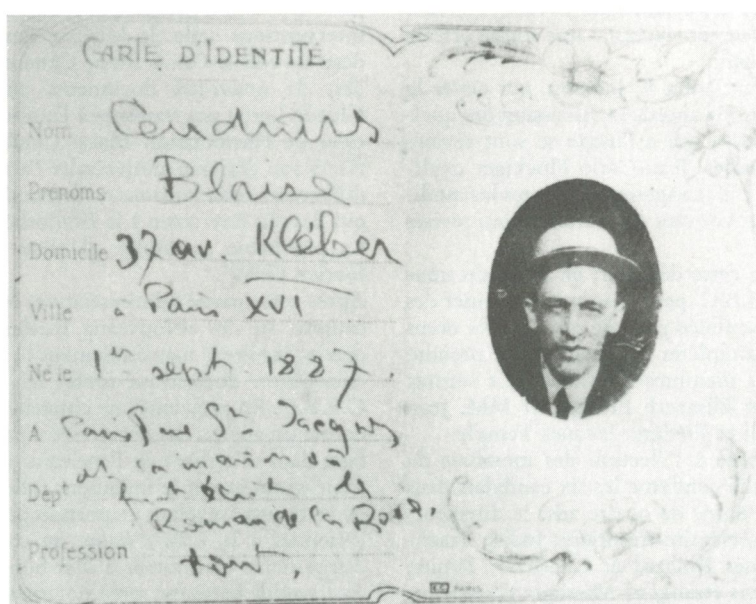 CARTE D'IDENTITÉ
Nom Cendrars
Prénoms Blaise
Domicile 37 av. Kléber
Ville à Paris XVI
Né le 1er sept. 1887.
A Paris rue St Jacques
la maison où
Dépt fut écrit le
Roman de la Rose.
Profession tout.
PARIS